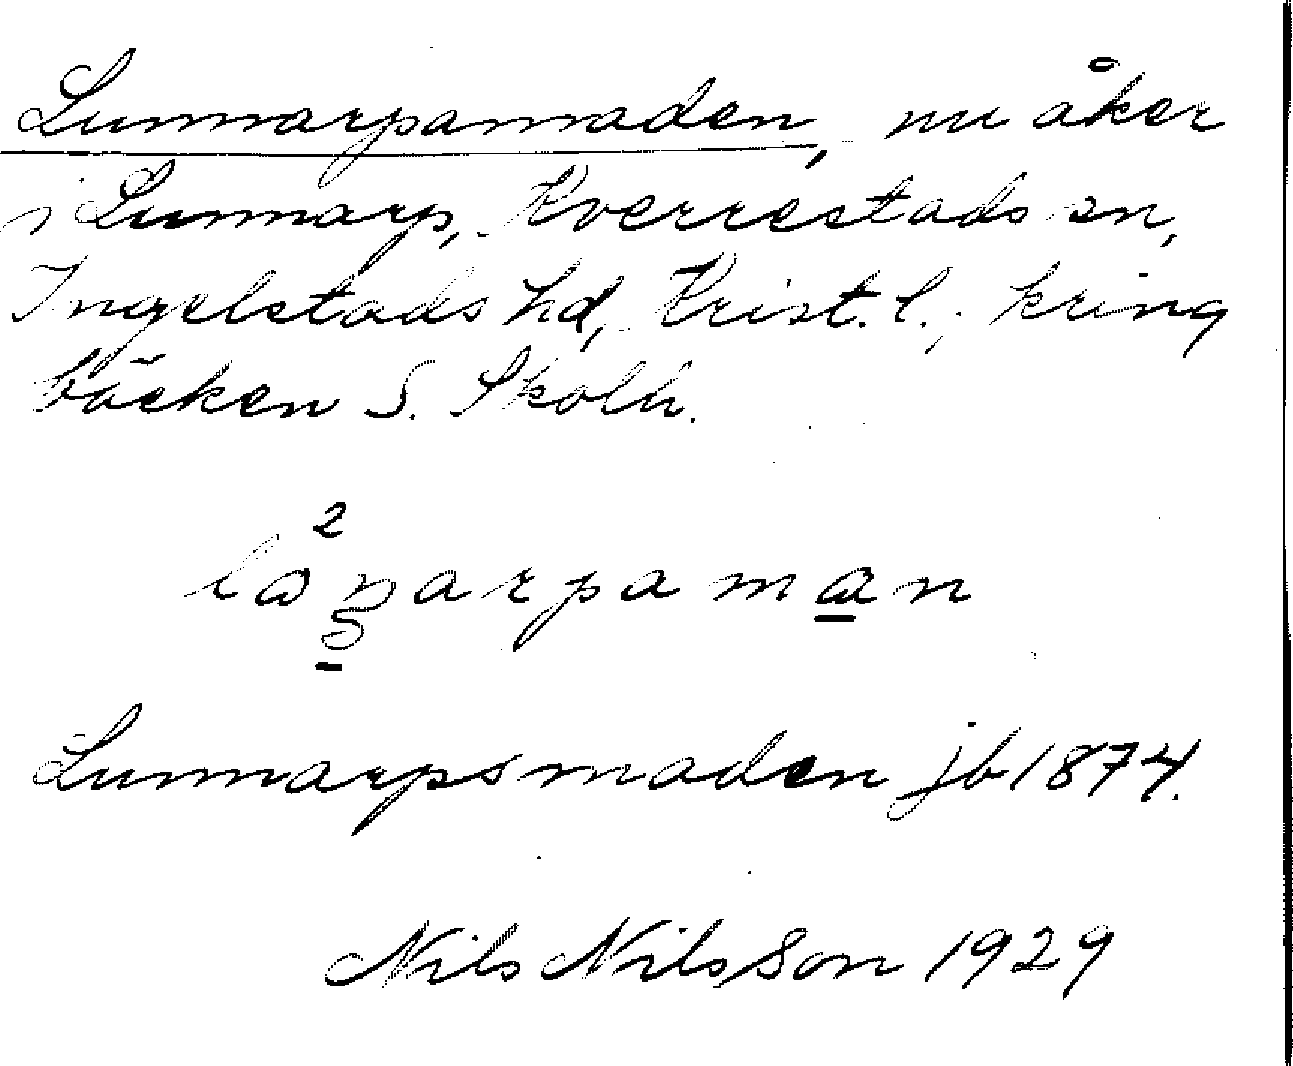 Lunnarpamaden, nu åker
i Lunnarp, Kverrestads sn,
Ingelstads hd, Krist. l.; kring
bäcken S. Skolh.
Lunnarpsmaden jb 1874.
Nils Nilsson 1929